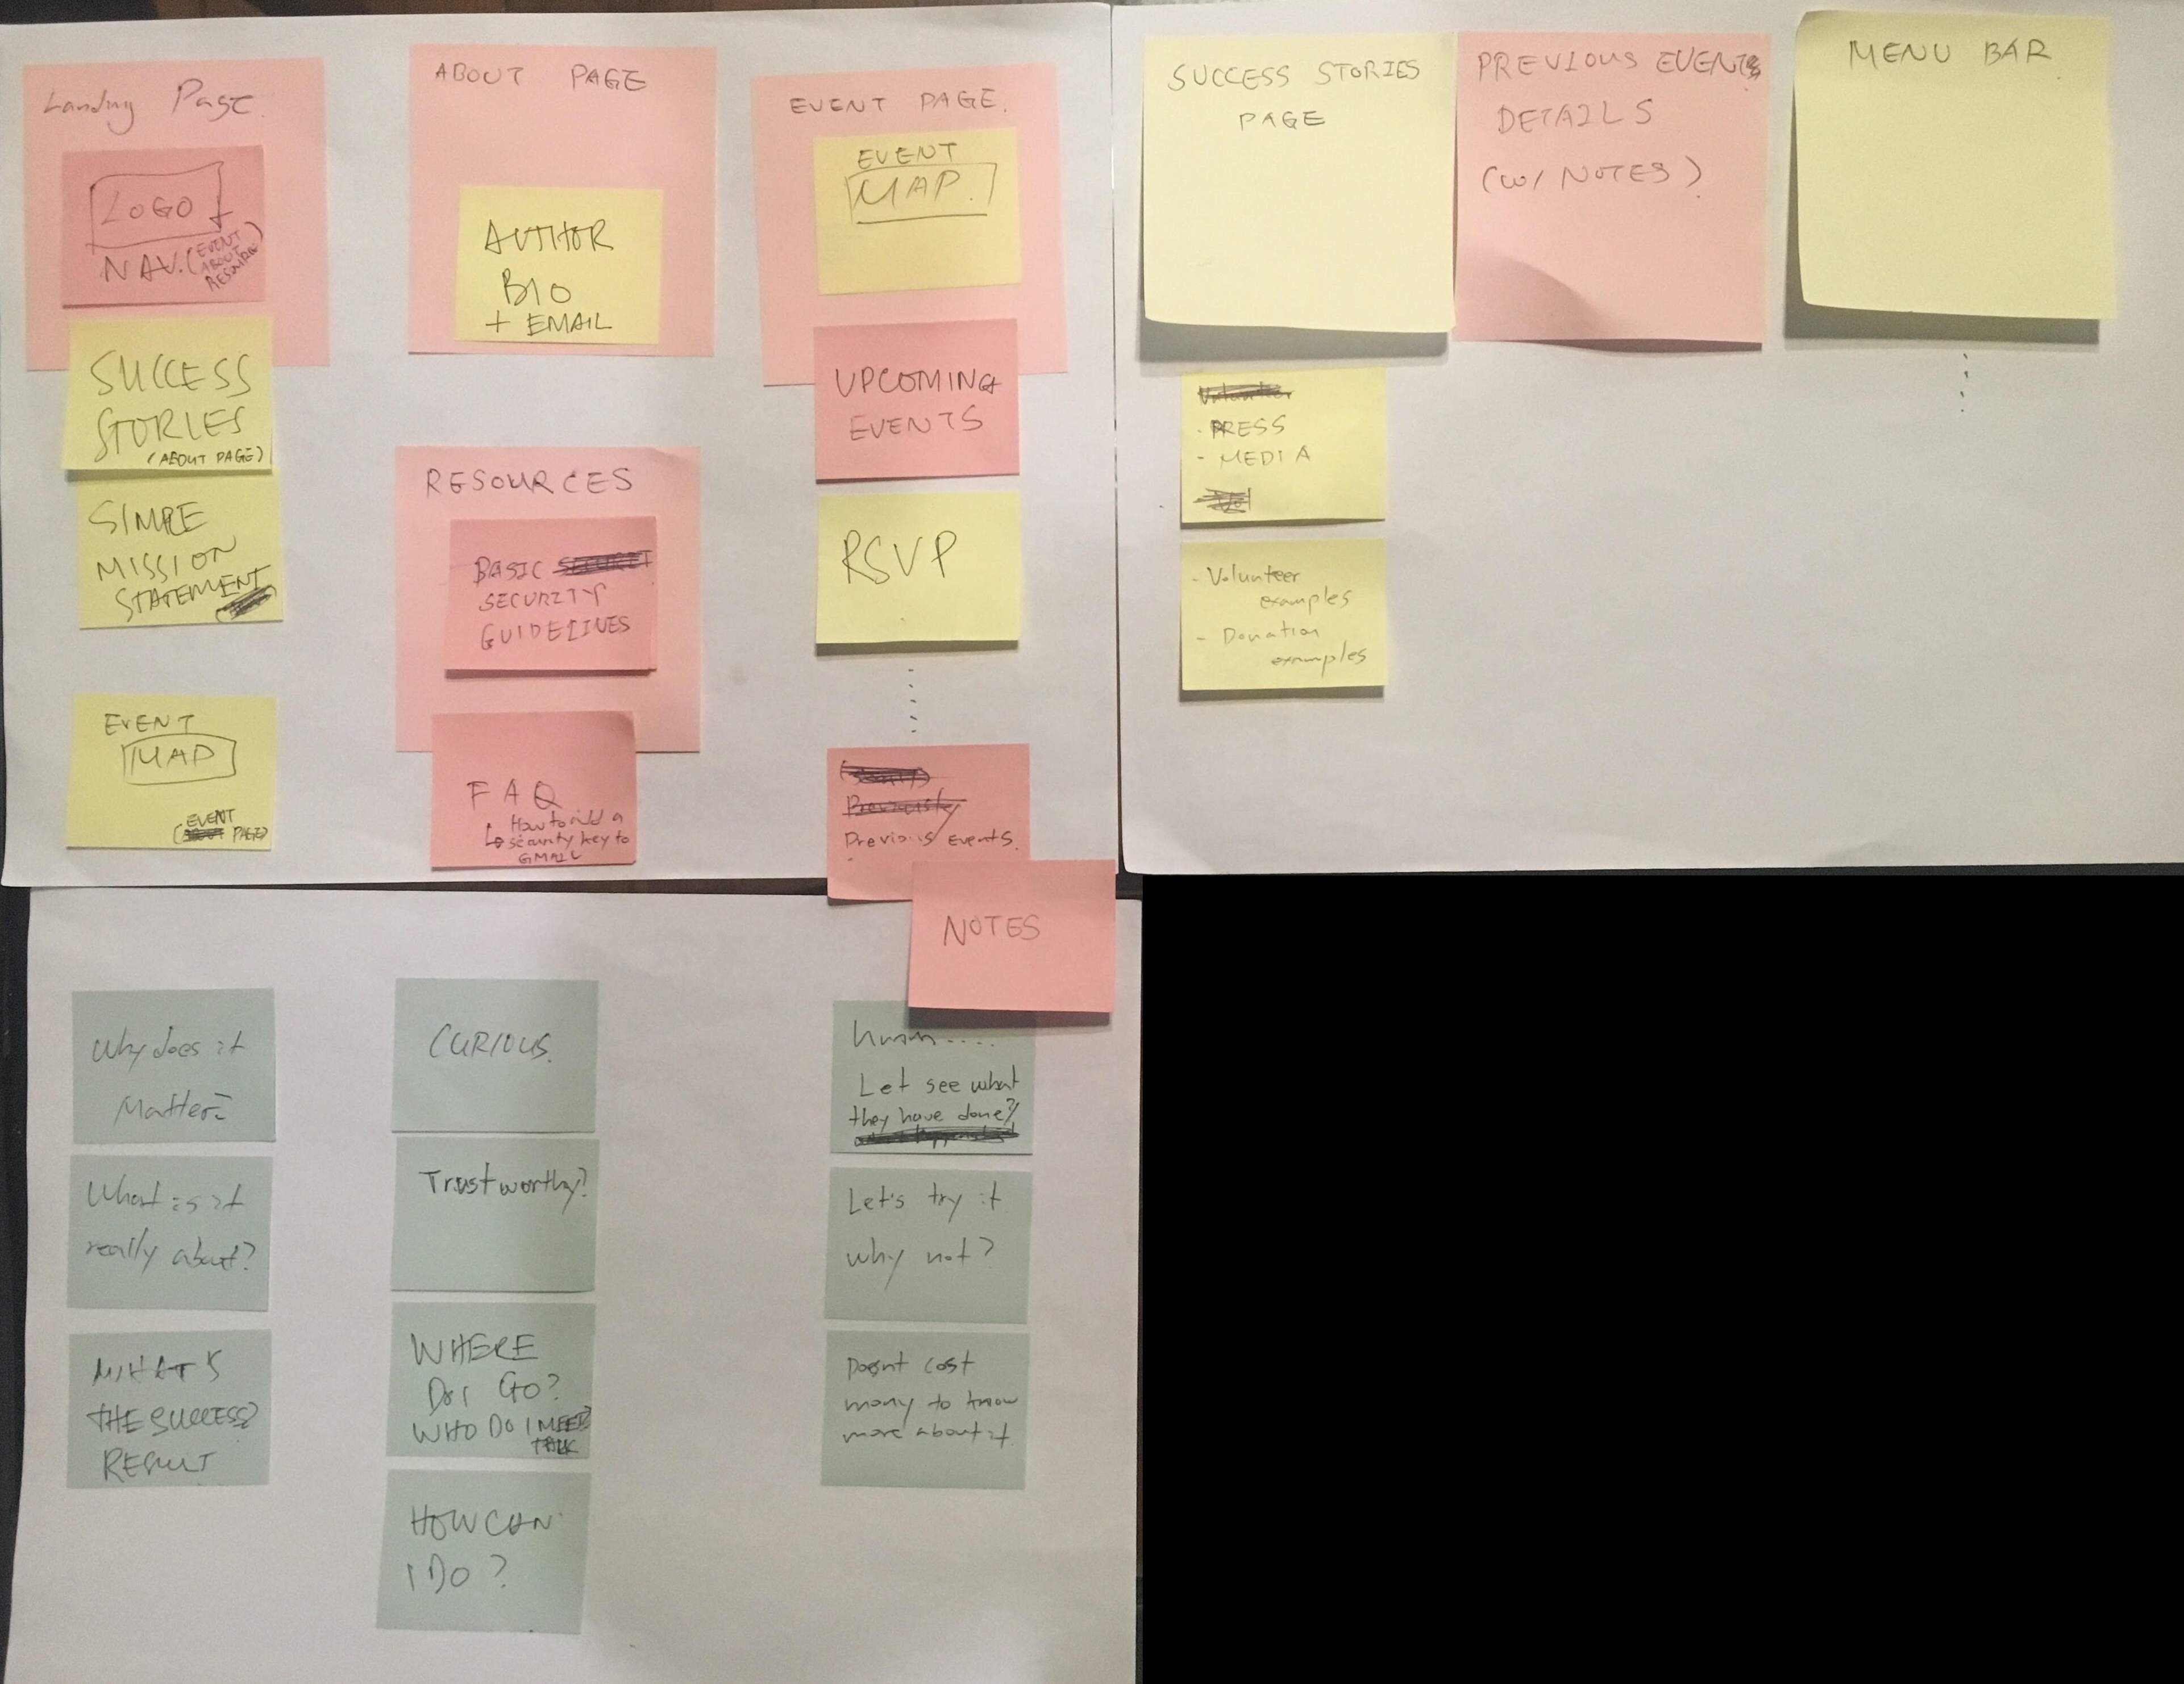 Landing Page.
LOGO
NAV. (EVENT
ABOUT
RESOURCE)
SUCCESS
STORIES
(ABOUT PAGE)
SIMPLE
MISSION
STATEMENT
EVENT
MAP
EVENT
( PAGE)
ABOUT PAGE
AUTHOR
BIO
+ EMAIL
RESOURCES
BASIC
SECURITY
GUIDELINES
FAQ
How to add a
security key to
GMAIL
EVENT PAGE.
EVENT
MAP.
UPCOMING
EVENTS
RSVP
Previously
Previous Events.
NOTES
SUCCESS STORIES
PAGE
Volunteer
- PRESS
- MEDIA
- Volunteer
examples
- Donation
examples
PREVIOUS EVENTS
DETAILS
(W/ NOTES)
MENU BAR
Why does it
Matter?
What is it
really about?
WHAT'S
THE SUCCESS?
RESULT
CURIOUS.
Trustworthy?
WHERE
DO I GO?
WHO DO I NEED
TALK
HOW CAN
I DO?
humm....
Let see what
they have done?
Let's try it
why not?
Doesnt cost
mony to know
more about it.